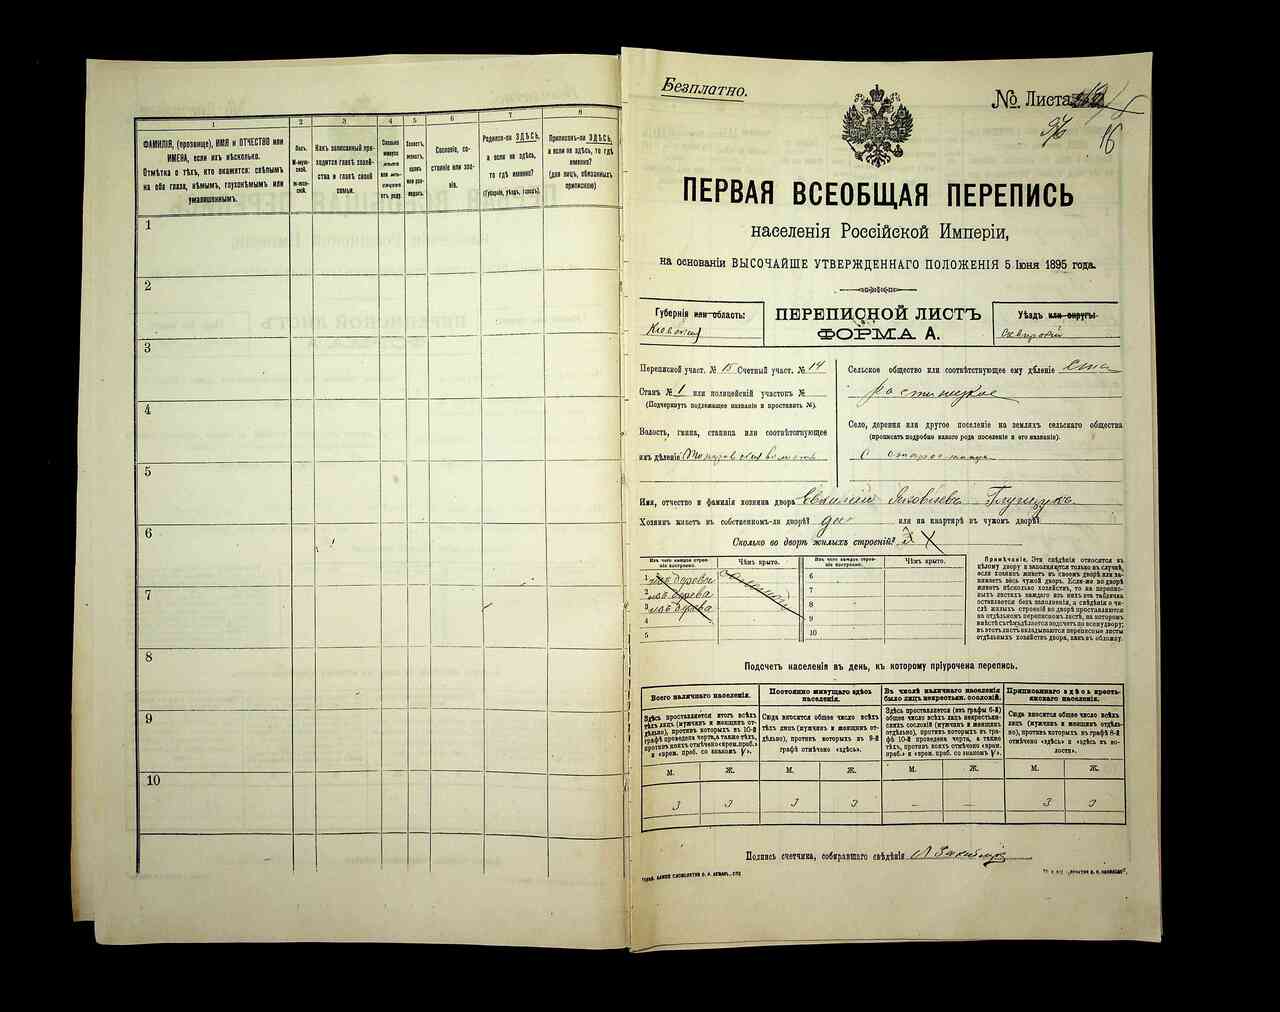 1
2
3
4
5
6
7
8
ФАМИЛІЯ, (прозвище), ИМЯ и ОТЧЕСТВО или
ИМЕНА, если ихъ нѣсколько.
Отмѣтка о тѣхъ, кто окажется: слѣпымъ
на оба глаза, нѣмымъ, глухонѣмымъ или
умалишеннымъ.
Полъ.
М-муж-
ской.
Ж-жен-
ской.
Какъ записанный при-
ходится главѣ хозяй-
ства и главѣ своей
семьи.
Сколько
минуло
лѣтъ
или мѣся-
цевъ
отъ роду.
Холостъ,
женатъ,
вдовъ
или раз-
веденъ.
Сословіе, со-
стояніе или зва-
ніе.
Родился-ли ЗДѢСЬ,
а если не здѣсь,
то гдѣ именно?
(Губернія, уѣздъ, городъ).
Приписанъ-ли ЗДѢСЬ,
а если не здѣсь, то гдѣ
именно?
(для лицъ, обязанныхъ
припискою)
1
2
3
4
5
6
7
8
9
10
Безплатно.
№ Листа
96
16
ПЕРВАЯ ВСЕОБЩАЯ ПЕРЕПИСЬ
населенія Россійской Имперіи,
на основаніи ВЫСОЧАЙШЕ УТВЕРЖДЕННАГО ПОЛОЖЕНІЯ 5 Іюня 1895 года.
Губернія или область:
Кіевская
ПЕРЕПИСНОЙ ЛИСТЪ
ФОРМА А.
Уѣздъ или округъ:
Сквирскій
Переписной участ. № 15 Счетный участ. № 14
Станъ № 1 или полицейскій участокъ №
(Подчеркнуть подлежащее названіе и проставить №).
Волость, гмина, станица или соотвѣтствующее
имъ дѣленіе
Сельское общество или соотвѣтствующее ему дѣленіе Ста
ростинское
Село, деревня или другое поселеніе на земляхъ сельскаго общества
(прописать подробно какого рода поселеніе и его названіе).
С Старостинцы
Имя, отчество и фамилія хозяина двора Евдокимъ Яковлевъ
Хозяинъ живетъ въ собственномъ-ли дворѣ? да или на квартирѣ въ чужомъ дворѣ?
Сколько во дворѣ жилыхъ строеній?
Изъ чего каждое строе-
ніе построено.
Чѣмъ крыто.
Изъ чего каждое строе-
ніе построено.
Чѣмъ крыто.
1 изъ дерева соломой
2 изъ дерева
3 изъ дерева
4
5
6
7
8
9
10
Примѣчаніе. Эти свѣдѣнія относятся къ
цѣлому двору и заполняются только въ случаѣ,
если хозяинъ живетъ въ своемъ дворѣ или за-
нимаетъ весь чужой дворъ. Если-же во дворѣ
живетъ нѣсколько хозяйствъ, то на перепис-
ныхъ листахъ каждаго изъ нихъ эта табличка
оставляется безъ заполненія, а свѣдѣнія о чи-
слѣ жилыхъ строеній во дворѣ проставляются
на отдѣльномъ переписномъ листѣ, на которомъ
вмѣстѣ съ тѣмъ дѣлается подсчетъ по всему двору;
въ этотъ листъ вкладываются переписные листы
отдѣльныхъ хозяйствъ двора, какъ въ обложку.
Подсчетъ населенія въ день, къ которому пріурочена перепись.
Всего наличнаго населенія.
Постоянно живущаго здѣсь
населенія.
Въ числѣ наличнаго населенія
было лицъ некрестьян. сословій.
Приписаннаго здѣсь кресть-
янскаго населенія.
Здѣсь проставляется итогъ всѣхъ
тѣхъ лицъ (мужчинъ и женщинъ от-
дѣльно), противъ которыхъ въ 10-й
графѣ проведена черта, а также тѣхъ,
противъ коихъ отмѣчено «врем. преб.»
и «врем. преб. со знакомъ V».
Сюда вносится общее число всѣхъ
тѣхъ лицъ (мужчинъ и женщинъ от-
дѣльно), противъ которыхъ въ 9-й
графѣ отмѣчено «здѣсь».
Здѣсь проставляется (изъ графы 6-й)
общее число всѣхъ лицъ некрестьян-
скихъ сословій (мужчинъ и женщинъ
отдѣльно), противъ которыхъ въ гра-
фѣ 10-й проведена черта, а также
тѣхъ, противъ коихъ отмѣчено «врем.
преб.» и «врем. преб. со знакомъ V».
Сюда вносится общее число всѣхъ
лицъ (мужчинъ и женщинъ отдѣль-
но), противъ которыхъ въ графѣ 8-й
отмѣчено «здѣсь» и «здѣсь въ во-
лости».
М. Ж. М. Ж. М. Ж. М. Ж.
3 3 3 3 — — 3 3
Подпись счетчика, собиравшаго свѣдѣнія